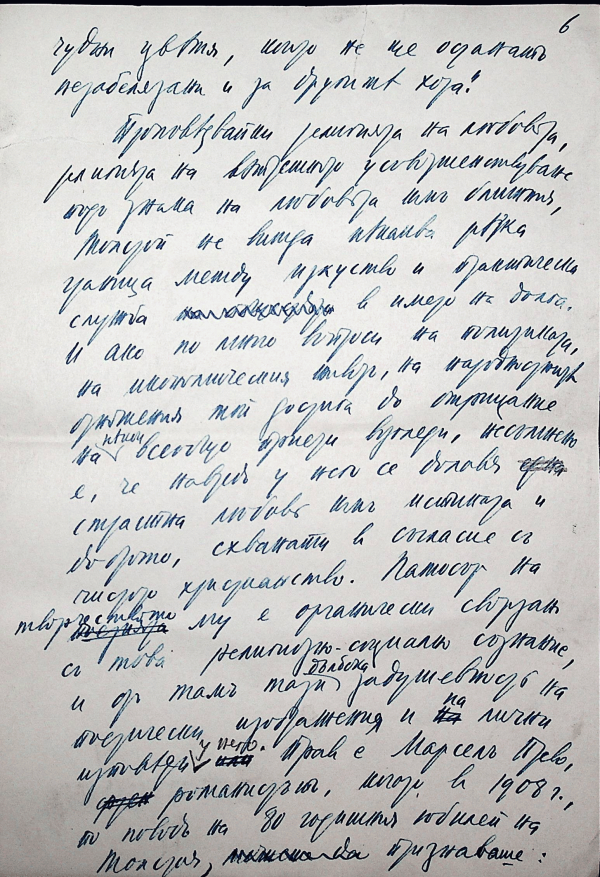 6
чудни цветя, които не ще останатъ
незабелязани и за другитѣ хора."
Проповѣдвайки религията на любовьта,
религията на вѫтрешното усъвършенствуване
подъ знака на любовьта къмъ ближния,
Толстой не вижда никаква рѣзка
граница между изкуство и практическа
служба въ името на дълга.
И ако по много въпроси на политиката,
на икономическия животъ, на народностнитѣ
отношения той достига до отрицание
на нѣкои всеобщо приети възгледи, несъмнено
е, че навредъ у него се долавя
страстна любовь къмъ истината и
доброто, схванати въ съгласие съ
чистото християнство. Патосът на
творчеството му е органически свързанъ
съ това религиозно-социално съзнание,
и отъ тамъ тази дълбока задушевность на
поетически изображения и на лични
изповѣди у него. Правъ е Марселъ Прево,
романистътъ, който въ 1908 г.,
по поводъ на 80 годишния юбилей на
Толстоя, признаваше: